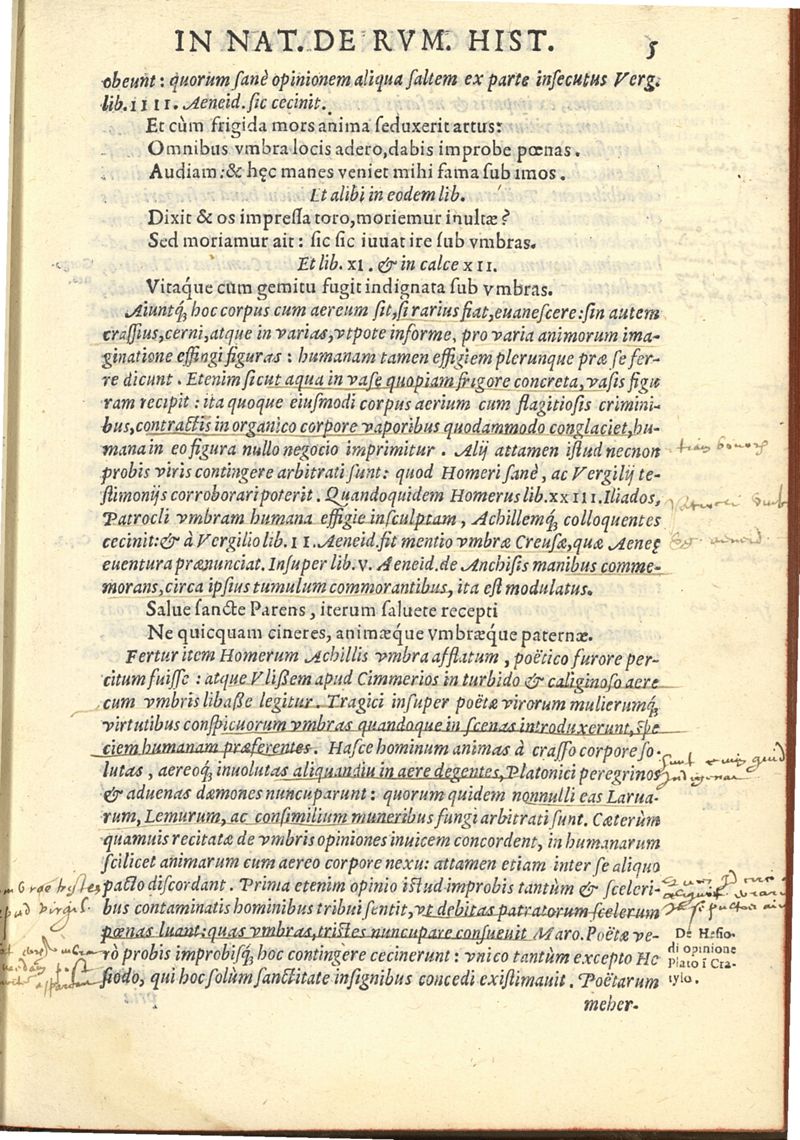 IN NAT. DE RVM. HIST. 5
obeunt : quorum sanè opinionem aliqua saltem ex parte insecutus Verg.
lib. IIII. Aeneid. sic cecinit.
Et cùm frigida mors anima seduxerit artus:
Omnibus vmbra locis adero, dabis improbe pœnas.
Audiam: & hęc manes veniet mihi fama sub imos.
Et alibi in eodem lib.
Dixit & os impressa toro, moriemur inultæ?
Sed moriamur ait: sic sic iuuat ire sub vmbras.
Et lib. XI. & in calce XII.
Vitaque cum gemitu fugit indignata sub vmbras.
Aiuntq́; hoc corpus cum aereum sit, si rarius fiat, euanescere: sin autem
crassius, cerni, atque in varias, vtpote informe, pro varia animorum ima-
ginatione effingi figuras : humanam tamen effigiem plerunque præ se fer-
re dicunt. Etenim sicut aqua in vase quopiam frigore concreta, vasis figu
ram recipit : ita quoque eiusmodi corpus aerium cum flagitiosis crimini-
bus, contractis in organico corpore vaporibus quodammodo conglaciet, hu-
mana in eo figura nullo negocio imprimitur. Alij attamen istud necnon
probis viris contingere arbitrati sunt: quod Homeri sanè, ac Vergilij te-
stimonijs corroborari poterit. Quandoquidem Homerus lib. XXIII. Iliados,
Patrocli vmbram humana effigie insculptam, Achillemq́; colloquentes
cecinit: & à Vergilio lib. II. Aeneid. fit mentio vmbræ Creusæ, quæ Aeneę
euentura prænunciat. Insuper lib. V. Aeneid. de Anchisis manibus comme-
morans, circa ipsius tumulum commorantibus, ita est modulatus.
Salue sancte Parens, iterum saluete recepti
Ne quicquam cineres, animæque vmbræque paternæ.
Fertur item Homerum Achillis vmbra afflatum, poëtico furore per-
citum fuisse : atque Vlißem apud Cimmerios in turbido & caliginoso aere
cum vmbris libaße legitur. Tragici insuper poëtæ virorum mulierumq́;
virtutibus conspicuorum vmbras quandoque in scenas introduxerunt, spe
ciem humanam præferentes. Hasce hominum animas à crasso corpore so-
lutas, aereoq́; inuolutas aliquandiu in aere degentes, Platonici peregrinos
& aduenas dæmones nuncuparunt : quorum quidem nonnulli eas Larua-
rum, Lemurum, ac consimilium muneribus fungi arbitrati sunt. Cæterùm
quamuis recitatæ de vmbris opiniones inuicem concordent, in humanarum
scilicet animarum cum aereo corpore nexu: attamen etiam inter se aliquo
pacto discordant. Prima etenim opinio istud improbis tantùm & sceleri-
bus contaminatis hominibus tribui sentit, vt debitas patratorum scelerum
pœnas luant: quas vmbras, tristes nuncupare consueuit Maro. Poëtæ ve-
rò probis improbisq́; hoc contingere cecinerunt: vnico tantùm excepto He
siodo, qui hoc solùm sanctitate insignibus concedi existimauit. Poëtarum
meher-
bonorum
Patrocli vmb
aeneid.
sunt enim quid
Indigenae
De Hesio-
di opinione
Plato ī Cra-
tylo.
tristes
apud virgil.